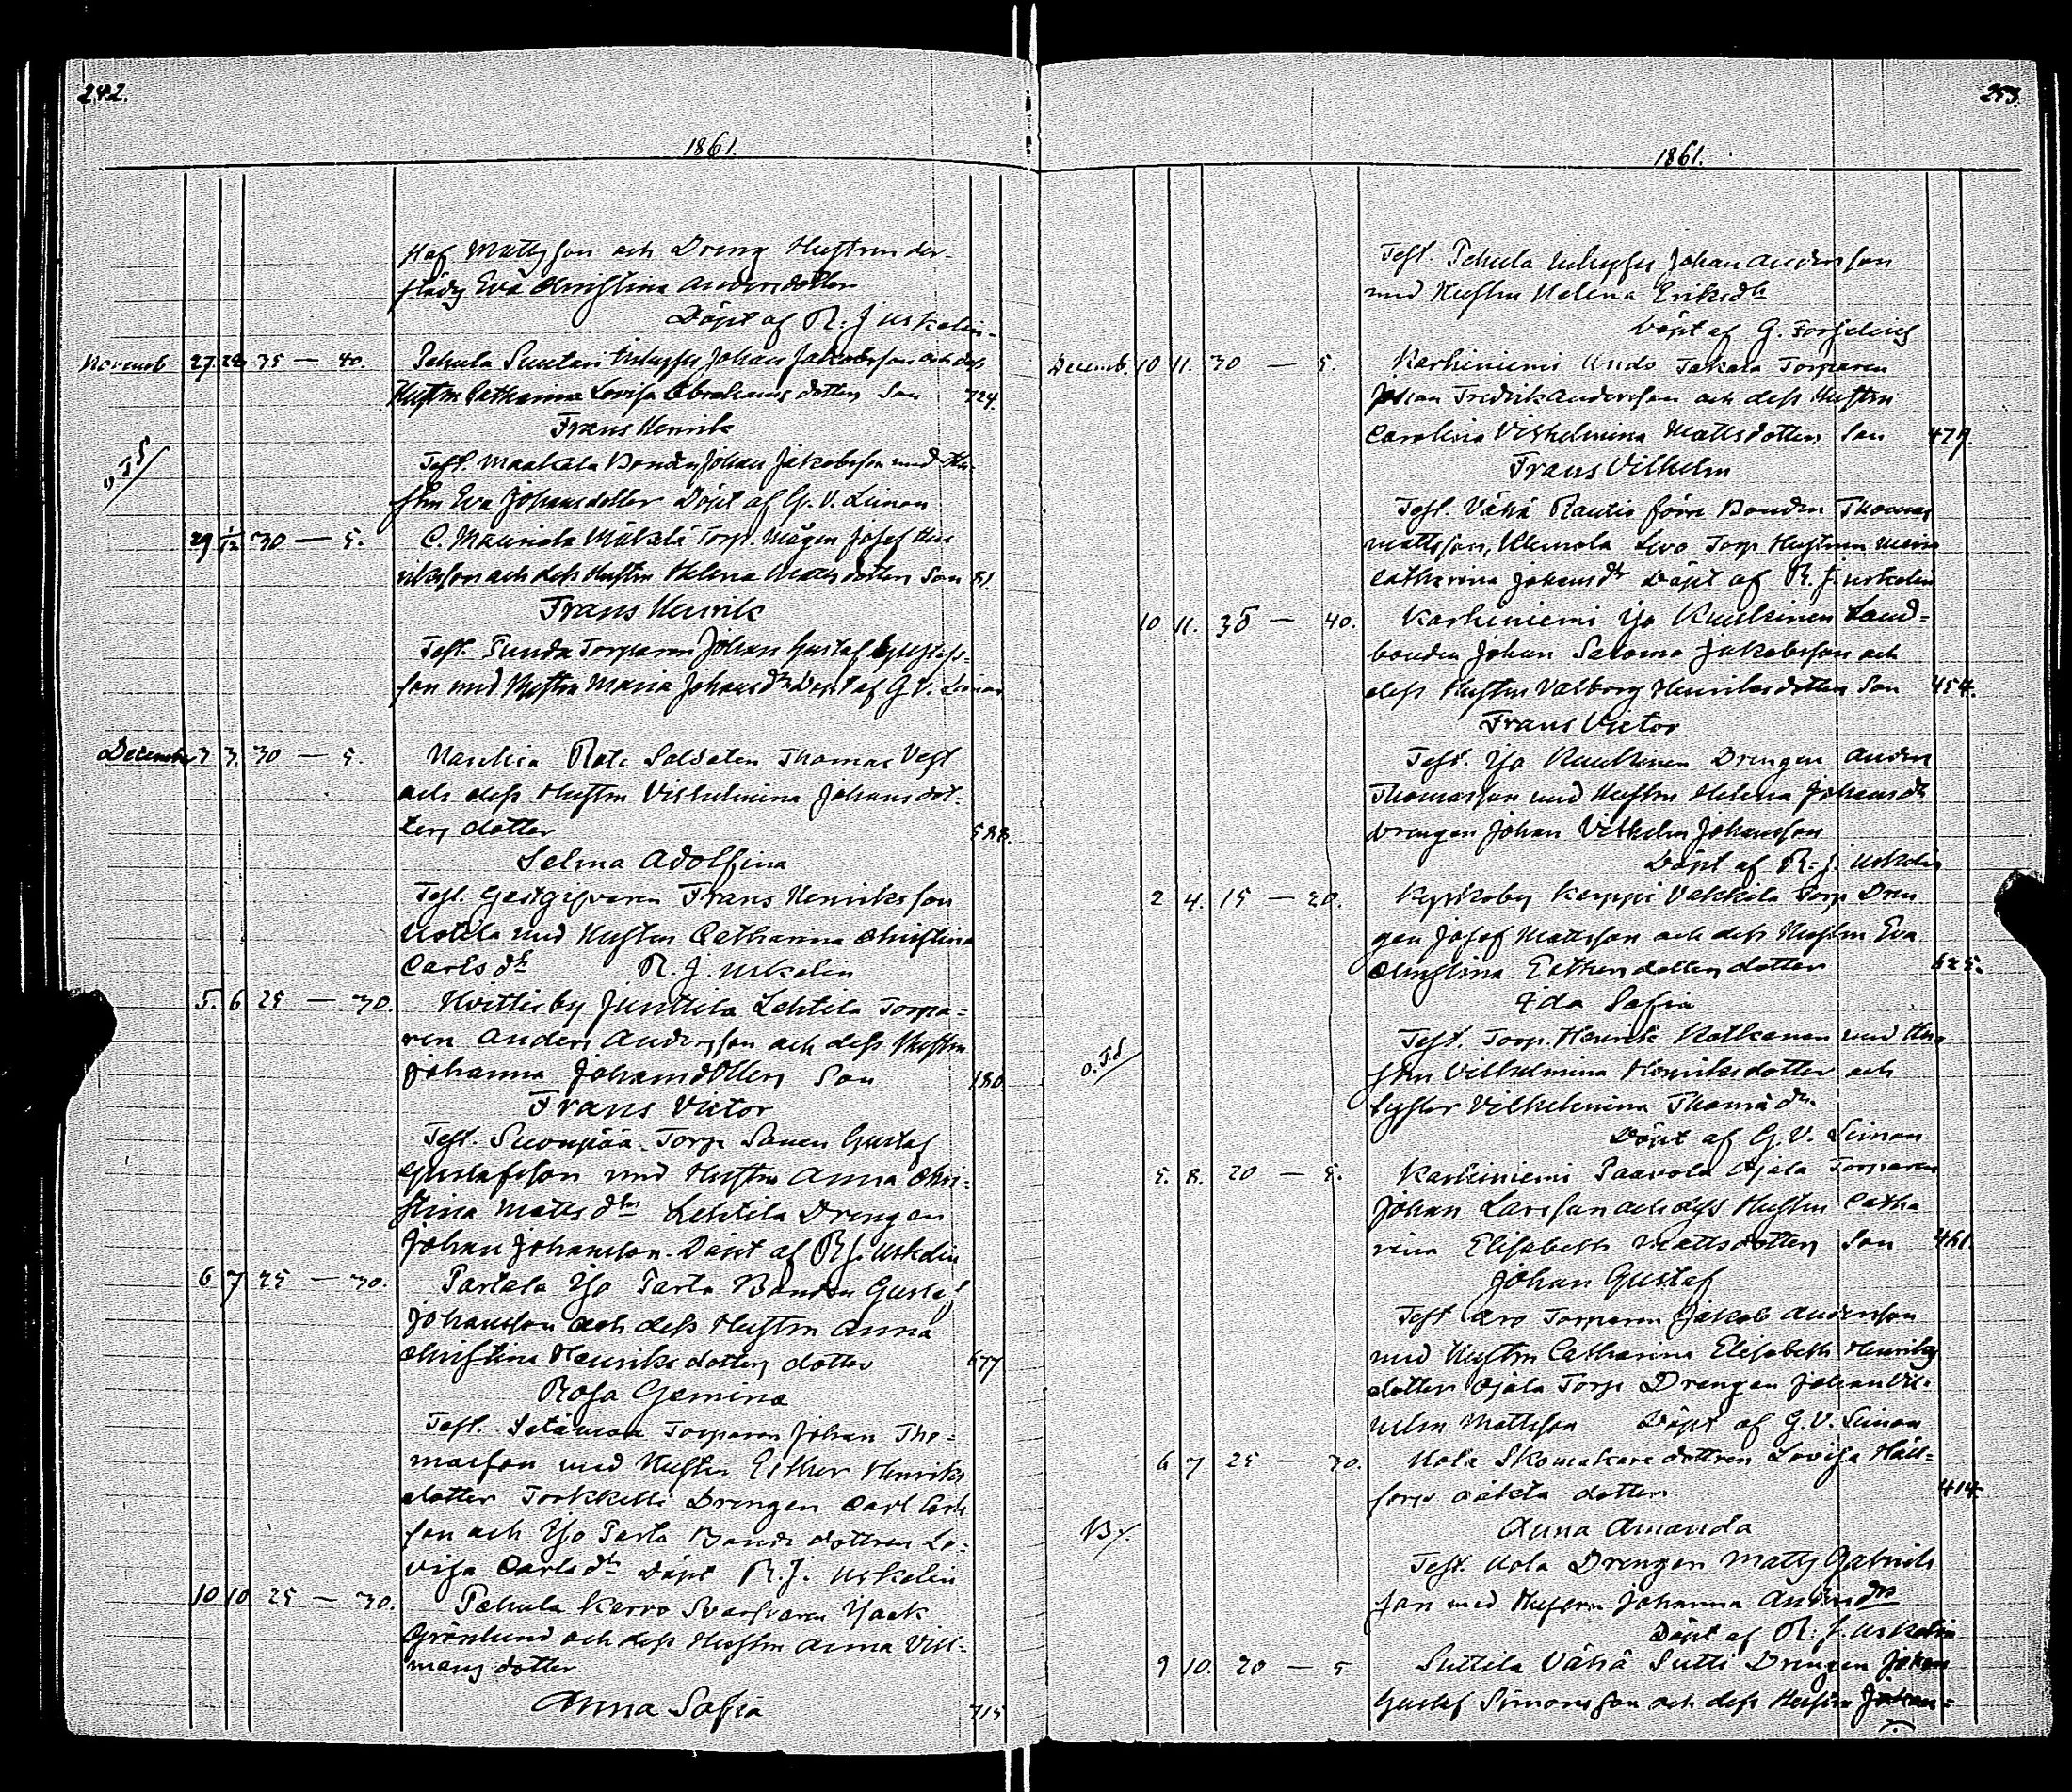 242.
1861.
staf Mattsson och Dreng Hustrun der-
städs Eva Christina Andersdotter
Döpt af R. J. Uskelin.
Novemb 27. 28. 35 — 40. Pehula Suutari Inhyses Johan Jakobsson och dess
Hustru Catharina Lovisa Abrahams dotters Son 724.
Frans Henrik
Test. Maakala Bonden Johan Jakobsson med Hu-
strun Eva Johansdotter Döpt af G. V. Limon
29 1/12 30 — 5. C. Mauriala Mäkelä Torp. Mågen Josef Hen
riksson och dess Hustru Helena Matts dotters Son 81.
Frans Henrik
Test. Punda Torparen Johan Gustaf Gustafs-
son med Hustru Maria Johans dr Döpt af G. V. Limon
December 3 3. 30 — 5. Rote Soldaten Thomas Vest
och dess Hustru Vilhelmina Johansdot-
ters dotter 588.
Selma Adolfina
Test. Gestgifvaren Frans Henriksson
Ustola med Hustru Catharina Christina
Carls dr R. J. Uskelin
5. 6 25 — 30. Hvittisby Junttila Lehtila Torpa-
ren Anders Andersson och dess Hustru
Johanna Johansdotters Son 180
Frans Victor
Test. Suonpää Torp Sonen Gustaf
Gustafsson med Hustru Anna Chri-
stina Matts dr Lehtila Drengen
Johan Johansson. Döpt af R. J. Uskelin
6 7 25 — 30. Parlala Yjo Parta Bonden Gustaf
Johansson och dess Hustru Anna
Christina Henriks dotters dotter 677
Rosa Gemina
Test. Torparen Johan Tho-
masson med Hustru Esther Henriks
dotter Torkkelli Drengen Carl Carls
son och Yjo Parta Bonde dottren Lo-
visa Carls dr Döpt R. J. Uskelin
10 10 25 — 30. Pehula Kervo Svarfvaren Isaak
Grönlund och dess Hustru Anna Vill-
mans dotter
Anna Sofia 715
253.
1861.
Test. Pehula Inhyses Johan Andersson
med Hustru Helena Eriksdr
Döpt af G. Forselius
Decemb. 10 11. 30 — 5. Karhiniemi Undo Takala Torparen
Johan Fredrik Andersson och dess Hustru
Carolina Vilhelmina Mattsdotters Son 479.
Frans Vilhelm
Test. Vähä Rautio förre Bonden Thomas
Mattsson, Klemola Levo Torp Hustrun Maria
Catharina Johans dr Döpt af R. J. Uskelin
10 11. 35 — 40. Karhiniemi Yjo Kuukinen Land-
bonden Johan Salomo Jakobsson och
dess Hustru Valborg Henriksdotters Son 454.
Frans Victor
Test. Yjo Kuukinen Drengen Anders
Thomasson med Hustru Helena Johans dr
Drengen Johan Vilhelm Johansson
Döpt af R. J. Uskelin
2 4. 15 — 20. Kyrkoby Karppi Vakkila Torp Dren
gen Josef Mattsson och dess Hustru Eva
Christina Esthers dotters dotter 625.
Ida Sofia
Test. Torp. Henrik Kotkanen med Hu-
strun Vilhelmina Henriksdotter och
Syster Vilhelmina Thomä dr.
Döpt af G. V. Limon
5. 8. 20 — 5. Karhiniemi Paavola Ojala Torparen
Johan Larsson och dess Hustru Catha
rina Elisabeth Mattsdotters Son 461.
Johan Gustaf
Test Aro Torparen Jakob Andersson
med Hustru Catharina Elisabeth Henriks
dotter Ojala Torp Drengen Johan Vil-
helm Mattsson Döpt af G. V. Limon
6 7 25 — 30. Kola Skomakare dottren Lovisa Häll-
fors oäkta dotter 414.
Anna Amanda
Test. Kola Drengen Matts Gabriels
son med Hustru Johanna Anders dr
Döpt af R. J. Uskelin
9 10. 20 — 5 Suttila Vähä Sutti Drengen Johan
Gustaf Simonsson och dess Hustru Johan-